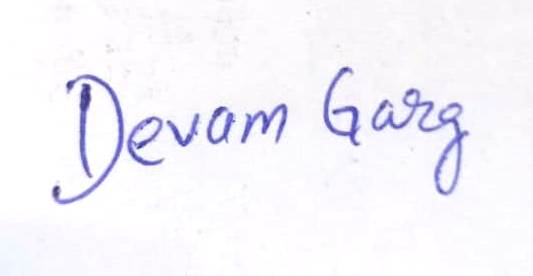 Devam Garg